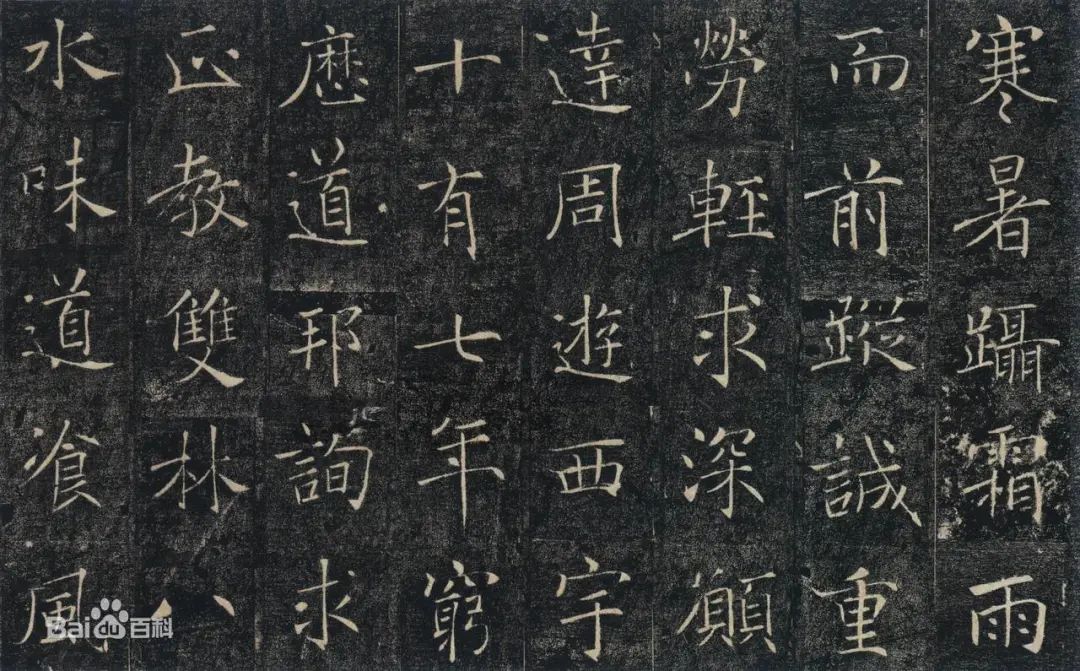 寒暑躡霜雨
而前蹤誠重
勞輕求深願
達周遊西宇
十有七年窮
歷道邦詢求
正教雙林八
水味道飡風
Baidu百科